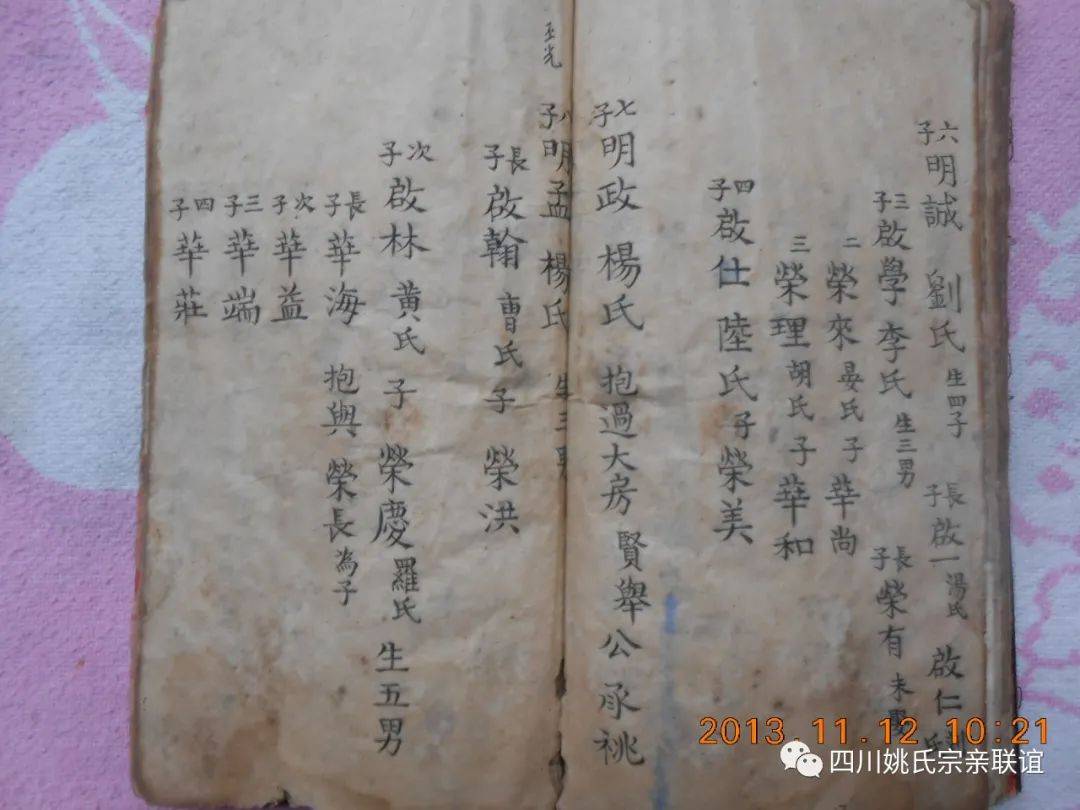 六子明誠 劉氏 生四子 長子啟一湯氏 啟仁
三子啟學李氏 生三男 長子榮有 未男
二榮來晏氏子華尚
三榮理胡氏子華和
四子啟仕陸氏子榮美
七子明政楊氏抱過大房賢舉公承祧
八子明孟楊氏 生三男
長子啟翰曹氏子榮洪
次子啟林黃氏子榮慶羅氏生五男
長子華海抱與榮長為子
次子華益
三子華端
四子華莊
2013.11.12 10:21
四川姚氏宗亲联谊